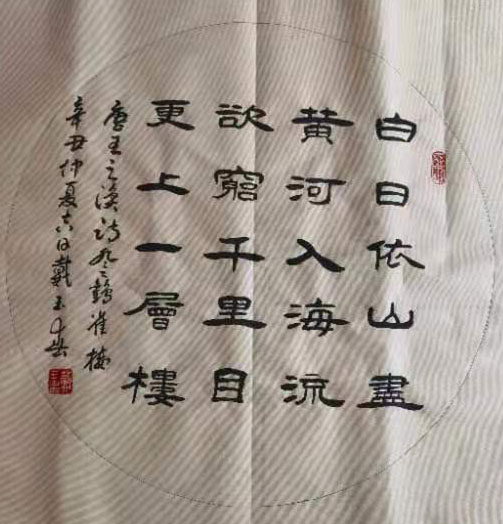 白日依山盡
黄河入海流
欲窮千里目
更上一層樓
唐王之渙詩登鸛雀樓
辛丑仲夏吉日戴玉